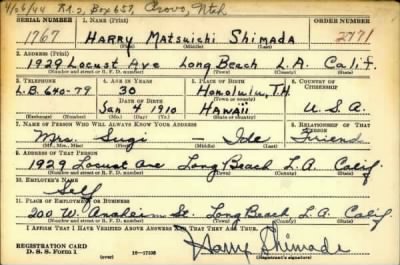 4/26/44 R.R.2, Box 658, Provo, Utah
SERIAL NUMBER 1. NAME (Print) ORDER NUMBER
1767 HARRY MATSUICHI SHIMADA 2771
(First) (Middle) (Last)
2. ADDRESS (Print)
1929 Locust Ave Long Beach L.A. Calif.
(Number and street or R. F. D. number) (Town) (County) (State)
3. TELEPHONE 4. AGE IN YEARS 5. PLACE OF BIRTH 6. COUNTRY OF CITIZENSHIP
L.B. 640-79 30 Honolulu, T.H.
DATE OF BIRTH (Town or county)
Jan 4 1910 Hawaii U.S.A.
(Exchange) (Number) (Mo.) (Day) (Yr.) (State or country)
7. NAME OF PERSON WHO WILL ALWAYS KNOW YOUR ADDRESS 8. RELATIONSHIP OF THAT PERSON
Mrs. Sugi — Ide Friend
(Mr., Mrs., Miss) (First) (Middle) (Last)
9. ADDRESS OF THAT PERSON
1929 Locust Ave Long Beach L.A. Calif
(Number and street or R. F. D. number) (Town) (County) (State)
10. EMPLOYER'S NAME
Self
11. PLACE OF EMPLOYMENT OR BUSINESS
200 W. Anaheim St. Long Beach L.A. Calif
(Number and street or R. F. D. number) (Town) (County) (State)
I AFFIRM THAT I HAVE VERIFIED ABOVE ANSWERS AND THAT THEY ARE TRUE.
REGISTRATION CARD
D. S. S. Form 1 (over) 16—17105 Harry Shimada
(Registrant's signature)